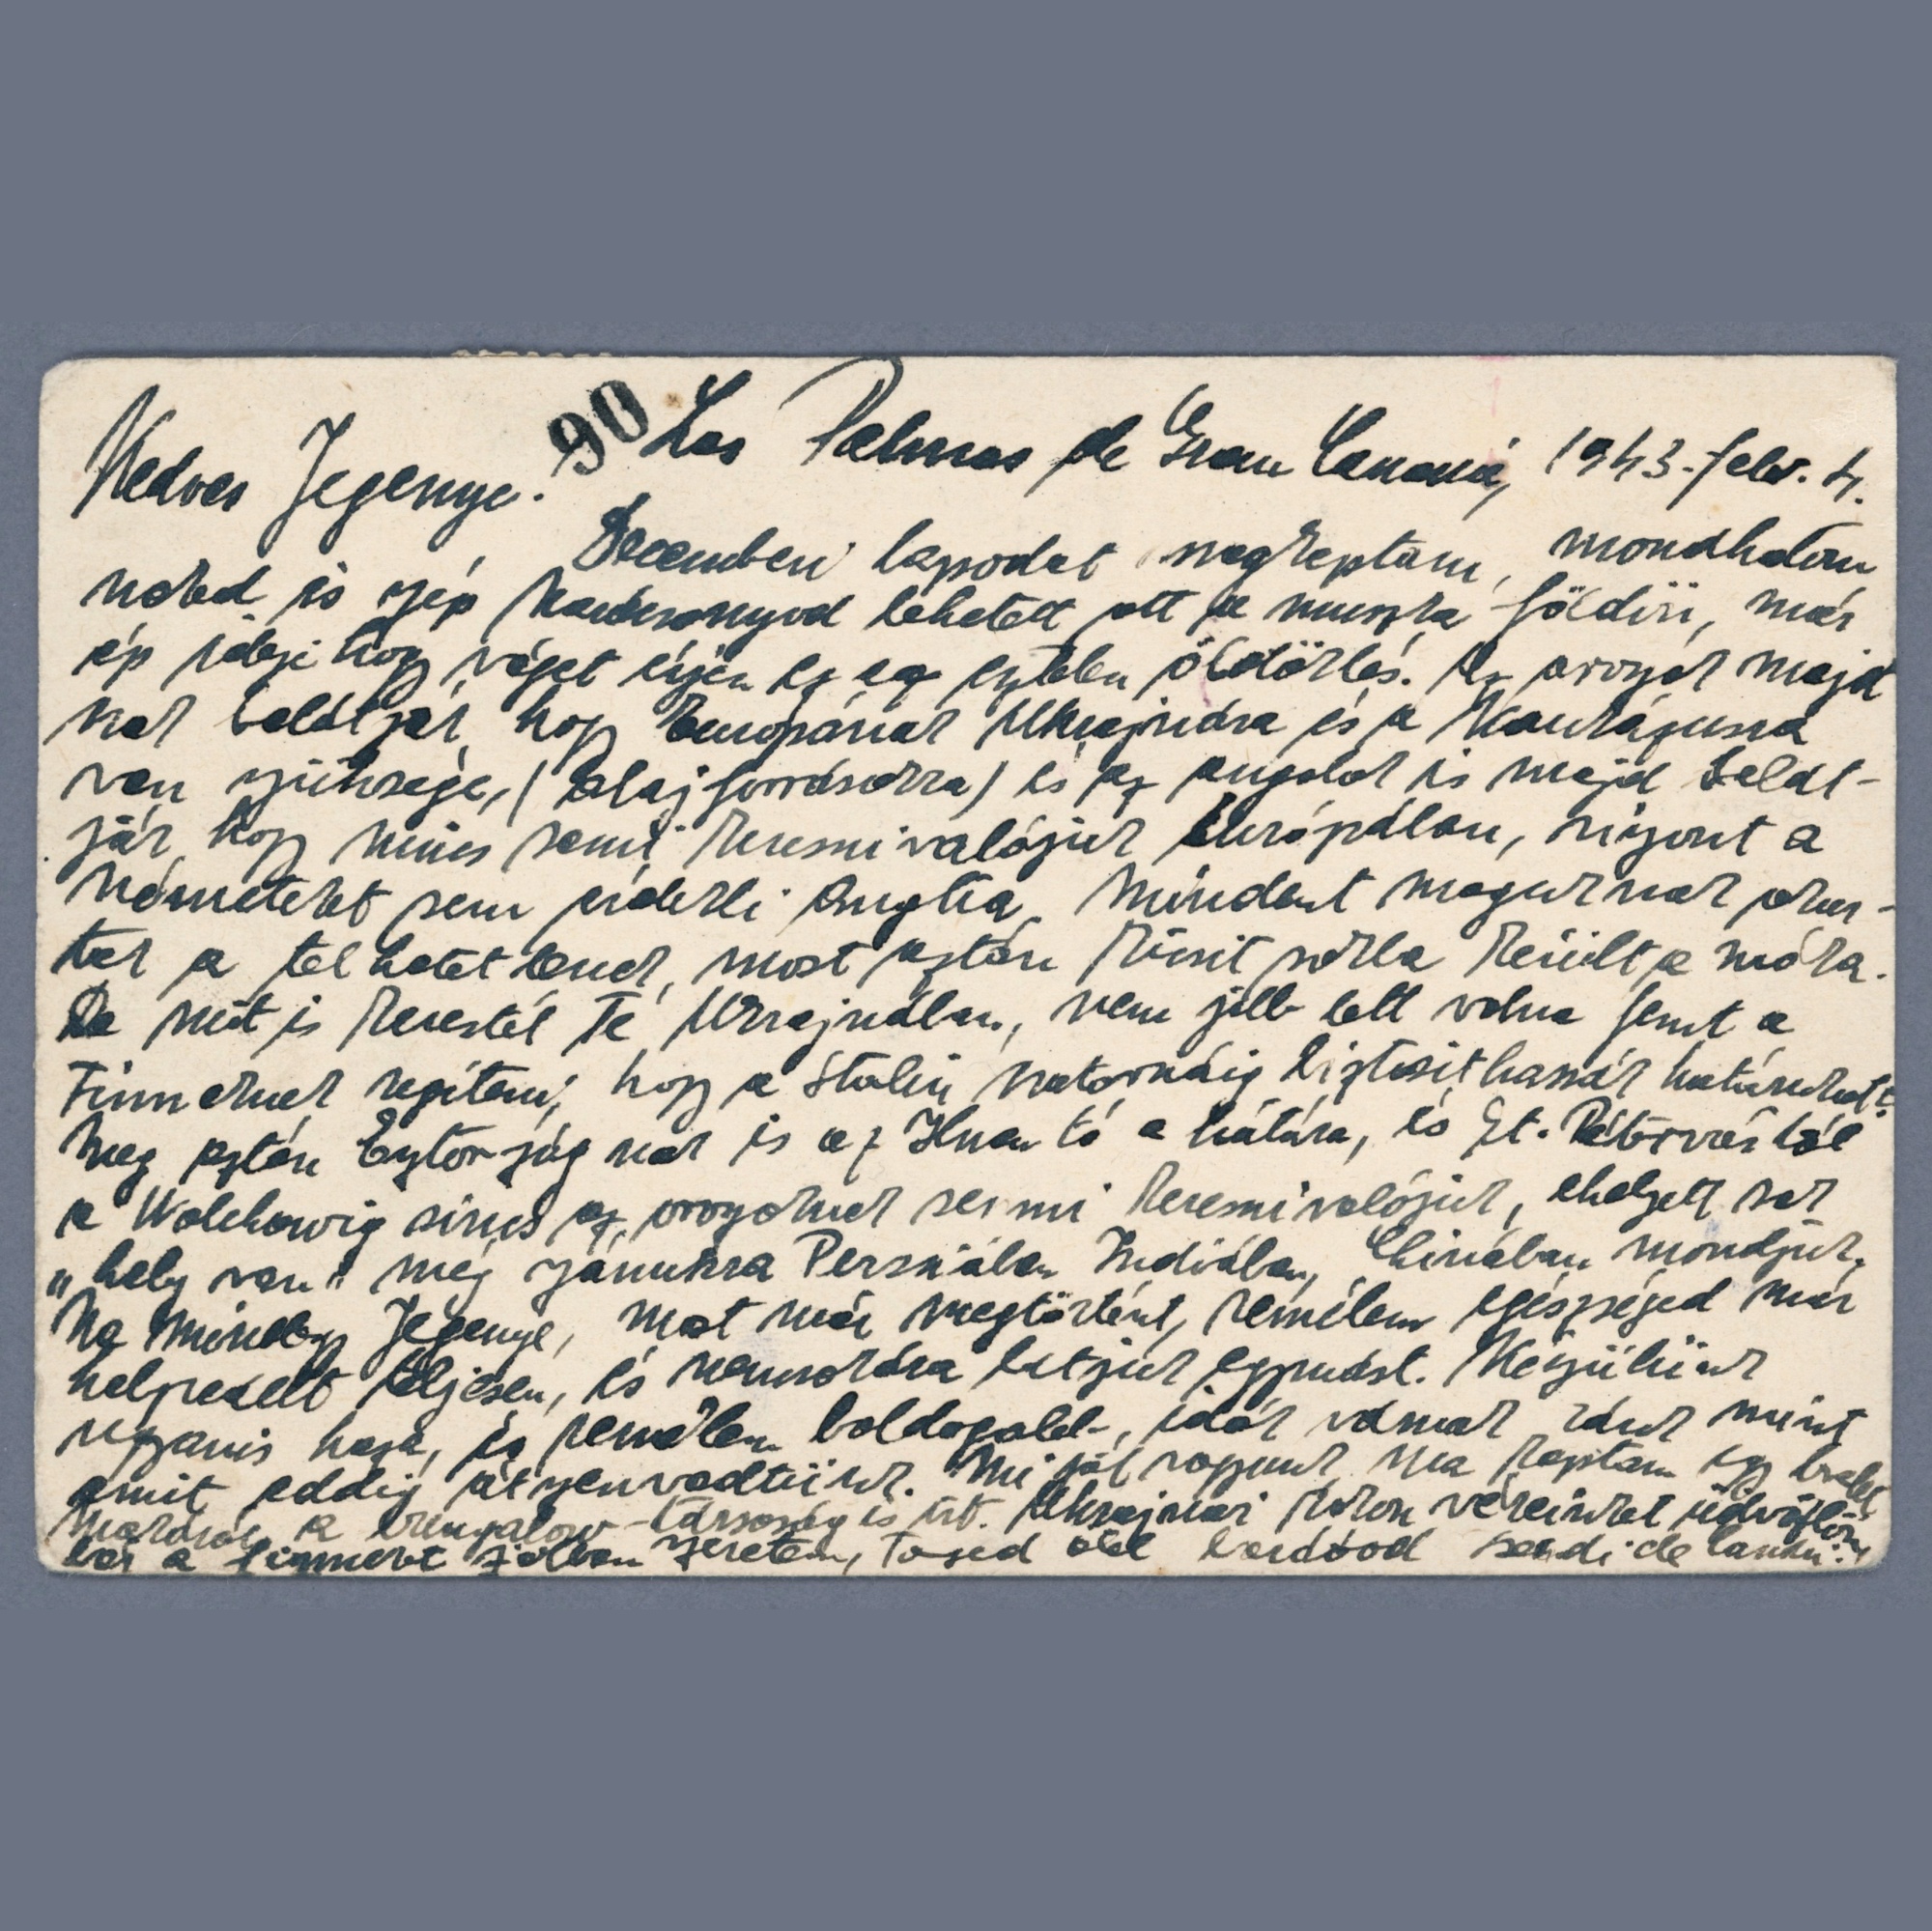 Kedves Jegenye! 90 Las Palmas de Gran Canaria, 1943. febr. 4.
Decemberi lapodat megkaptam, mondhatom
neked is szép Karácsonyod lehetett ott a muszka földön, már
ép ideje hogy véget érjen ez az esztelen öldöklés. Az oroszok majd
csak belátják, hogy Európának Ukrajnára és a Kaukázusra
van szüksége, (olajforrásokra) és az angolok is majd belát-
ják, hogy nincs semmi keresnivalójuk Európában, viszont a
németeket sem érdekli Anglia. Mindent maguknak akar-
tak a telhetetlenek, most aztán kicsit sokba került a móka.
De mit is kerestél Te Ukrajnában, nem jobb lett volna fent a
Finneknek segíteni, hogy a Stalin csatornáig biztosithassák határukat?
Meg aztán Esztországnak is az Ilmen tó a határa, és Szt. Pétervártól
a Wolchowig sincs az oroszoknak semmi keresnivalójuk, ehelyett sok
„hely van" még számukra Persiában Indiában, Chinában mondjuk.
Na mindegy Jegenye, most már megtörtént, remélem egészséged már
helyreállt teljesen, és nemsokára látjuk egymást. Készülünk
ugyanis haza, és remélem boldogabb idők várnak ránk mint
amit eddig átszenvedtünk. Mi jól vagyunk, ma kaptam egy levelet
a bungalow-társaság is írt. Ukrajnai rokon véreinket üdvözlöm,
bár a finneket jobban szeretem, Téged ölel barátod